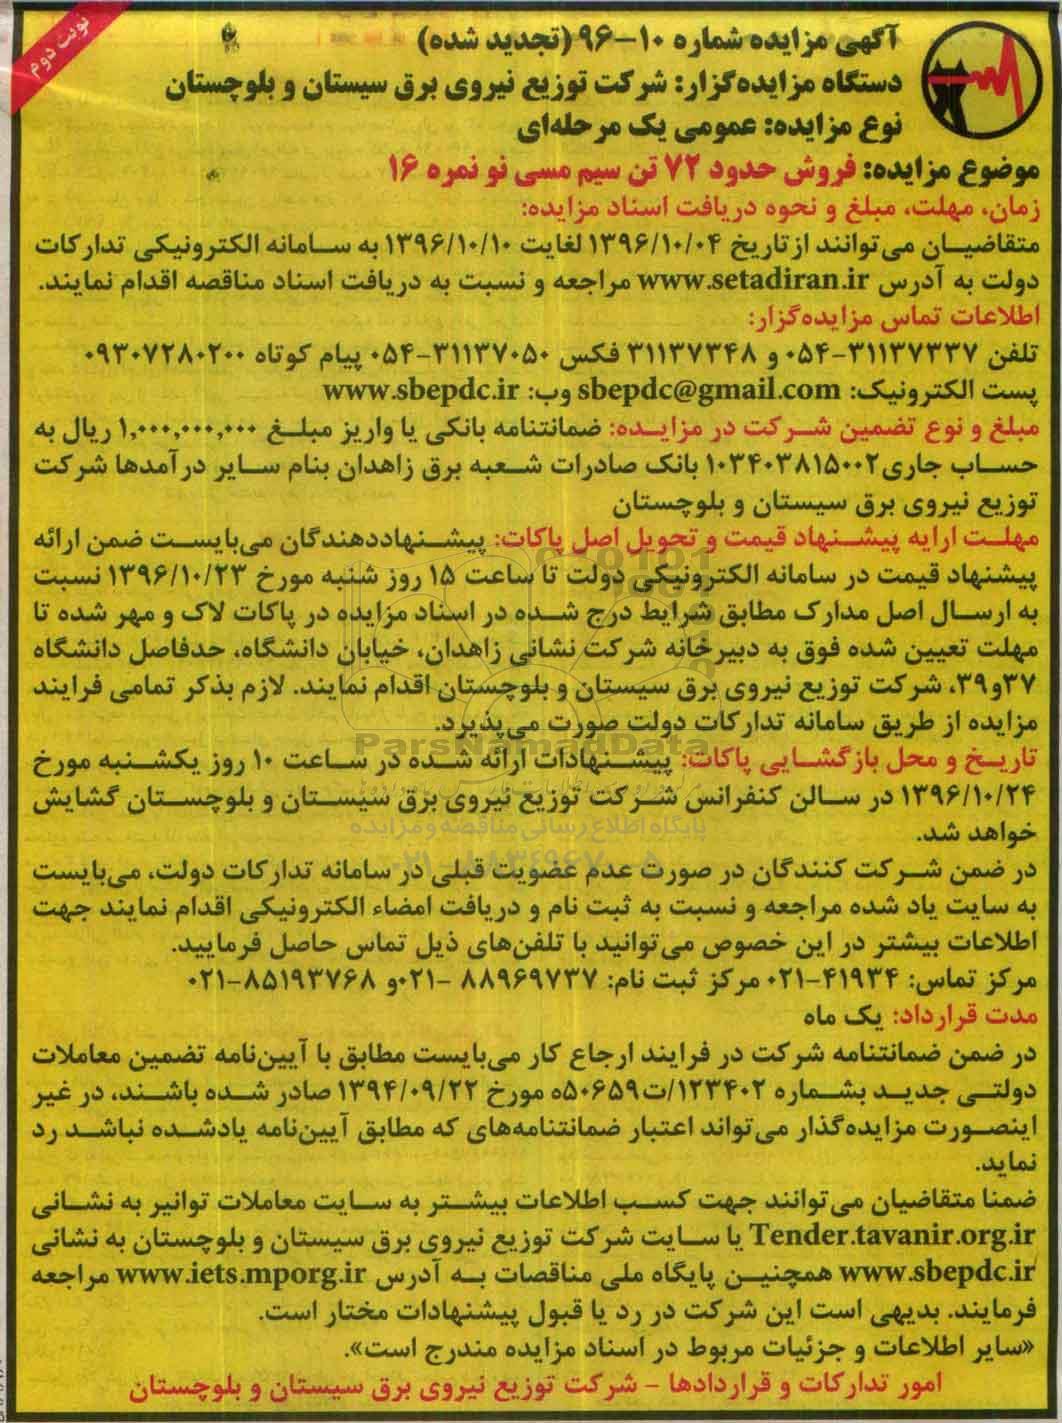 نوبت دوم
آگهی مزایده شماره ۱۰-۹۶ (تجدید شده)
دستگاه مزایده‌گزار: شرکت توزیع نیروی برق سیستان و بلوچستان
نوع مزایده: عمومی یک مرحله‌ای
موضوع مزایده: فروش حدود ۷۲ تن سیم مسی نو نمره ۱۶
زمان، مهلت، مبلغ و نحوه دریافت اسناد مزایده:
متقاضیان می‌توانند از تاریخ ۱۳۹۶/۱۰/۰۴ لغایت ۱۳۹۶/۱۰/۱۰ به سامانه الکترونیکی تدارکات
دولت به آدرس www.setadiran.ir مراجعه و نسبت به دریافت اسناد مناقصه اقدام نمایند.
اطلاعات تماس مزایده‌گزار:
تلفن ۳۱۱۳۷۳۳۷-۰۵۴ و ۳۱۱۳۷۳۴۸ فکس ۳۱۱۳۷۰۵۰-۰۵۴ پیام کوتاه ۰۹۳۰۷۲۸۰۲۰۰
پست الکترونیک: sbepdc@gmail.com وب: www.sbepdc.ir
مبلغ و نوع تضمین شرکت در مزایده: ضمانتنامه بانکی یا واریز مبلغ ۱,۰۰۰,۰۰۰,۰۰۰ ریال به
حساب جاری ۱۰۳۴۰۳۸۱۵۰۰۲ بانک صادرات شعبه برق زاهدان بنام سایر درآمدها شرکت
توزیع نیروی برق سیستان و بلوچستان
مهلت ارایه پیشنهاد قیمت و تحویل اصل پاکات: پیشنهاددهندگان می‌بایست ضمن ارائه
پیشنهاد قیمت در سامانه الکترونیکی دولت تا ساعت ۱۵ روز شنبه مورخ ۱۳۹۶/۱۰/۲۳ نسبت
به ارسال اصل مدارک مطابق شرایط درج شده در اسناد مزایده در پاکات لاک و مهر شده تا
مهلت تعیین شده فوق به دبیرخانه شرکت نشانی زاهدان، خیابان دانشگاه، حدفاصل دانشگاه
۳۷و۳۹، شرکت توزیع نیروی برق سیستان و بلوچستان اقدام نمایند. لازم بذکر تمامی فرایند
مزایده از طریق سامانه تدارکات دولت صورت می‌پذیرد.
ParsNamadData
تاریخ و محل بازگشایی پاکات: پیشنهادات ارائه شده در ساعت ۱۰ روز یکشنبه مورخ
۱۳۹۶/۱۰/۲۴ در سالن کنفرانس شرکت توزیع نیروی برق سیستان و بلوچستان گشایش
پایگاه اطلاع رسانی مناقصه و مزایده
خواهد شد.
۰۲۱-۸۸۳۴۹۶۷۰-۵
در ضمن شرکت کنندگان در صورت عدم عضویت قبلی در سامانه تدارکات دولت، می‌بایست
به سایت یاد شده مراجعه و نسبت به ثبت نام و دریافت امضاء الکترونیکی اقدام نمایند جهت
اطلاعات بیشتر در این خصوص می‌توانید با تلفن‌های ذیل تماس حاصل فرمایید.
مرکز تماس: ۴۱۹۳۴-۰۲۱ مرکز ثبت نام: ۸۸۹۶۹۷۳۷ -۰۲۱ و ۸۵۱۹۳۷۶۸-۰۲۱
مدت قرارداد: یک ماه
در ضمن ضمانتنامه شرکت در فرایند ارجاع کار می‌بایست مطابق با آیین‌نامه تضمین معاملات
دولتی جدید بشماره ۱۲۳۴۰۲/ت۵۰۶۵۹ه مورخ ۱۳۹۴/۰۹/۲۲ صادر شده باشند، در غیر
اینصورت مزایده‌گذار می‌تواند اعتبار ضمانتنامه‌های که مطابق آیین‌نامه یادشده نباشد رد
نماید.
ضمنا متقاضیان می‌توانند جهت کسب اطلاعات بیشتر به سایت معاملات توانیر به نشانی
Tender.tavanir.org.ir یا سایت شرکت توزیع نیروی برق سیستان و بلوچستان به نشانی
www.sbepdc.ir همچنین پایگاه ملی مناقصات به آدرس www.iets.mporg.ir مراجعه
فرمایند. بدیهی است این شرکت در رد یا قبول پیشنهادات مختار است.
«سایر اطلاعات و جزئیات مربوط در اسناد مزایده مندرج است».
امور تدارکات و قراردادها - شرکت توزیع نیروی برق سیستان و بلوچستان